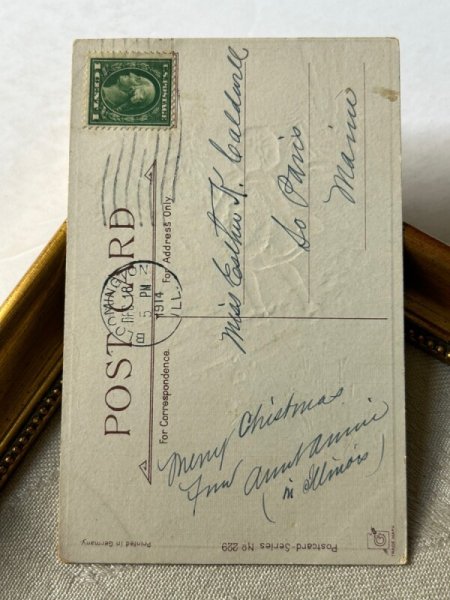 U.S. POSTAGE
1 CENT 1
POST CARD
For Correspondence.
For Address Only.
BLOOMINGTON
DEC 18
5 PM
1914
ILL.
Miss Esther K. Caldwell
So Paris
Maine
Merry Christmas
From Aunt Annie
(in Illinois)
Printed in Germany
Postcard-Series No 229
TRADE MARK